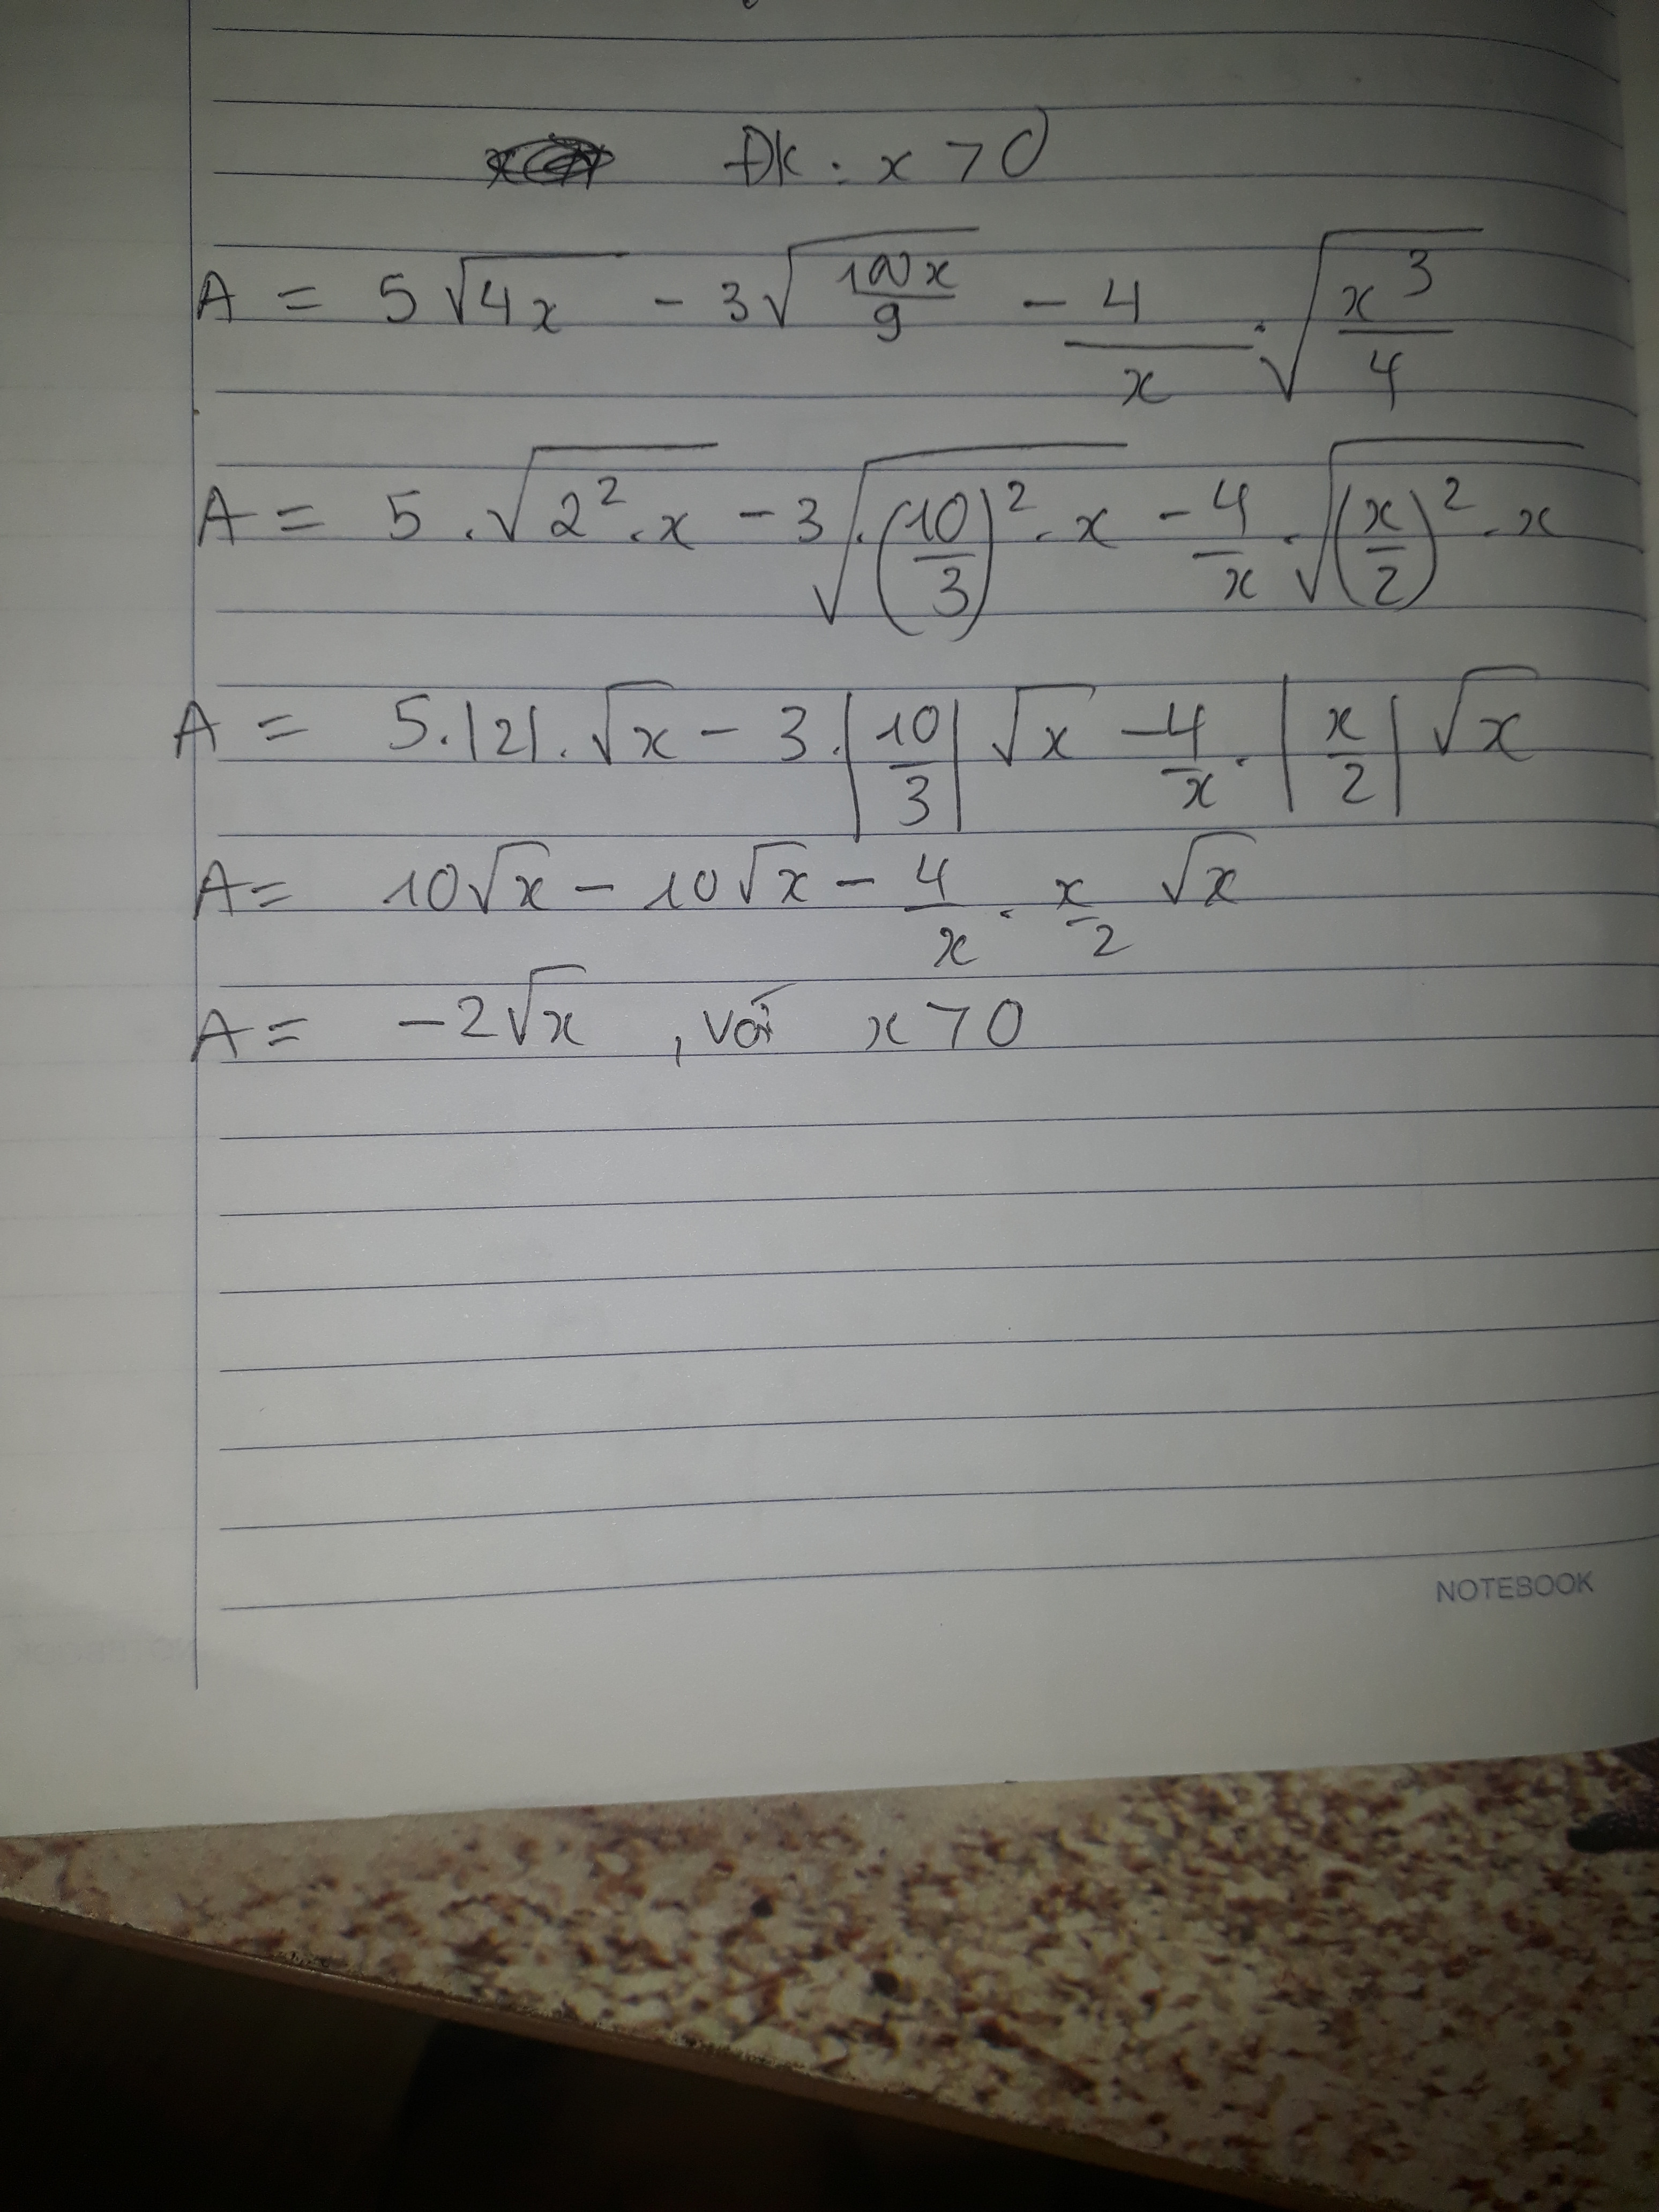 Đk : x > 0
A = 5√4x - 3√(100x/9) - 4/x . √(x³/4)
A = 5 . √(2² . x) - 3 . √((10/3)² . x) - 4/x . √((x/2)² . x)
A = 5 . |2| . √x - 3 . |10/3| √x - 4/x . |x/2| √x
A = 10√x - 10√x - 4/x . x/2 √x
A = -2√x , với x > 0
NOTEBOOK